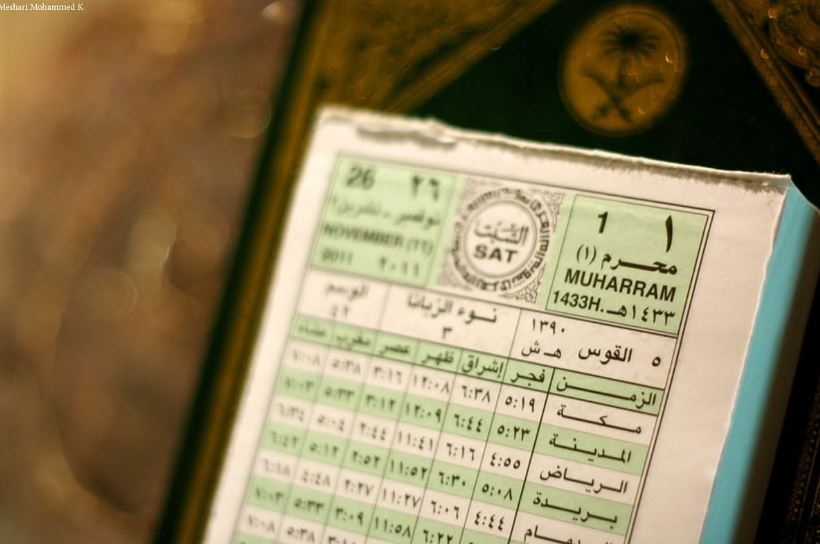 Meshari.Mohammed K
26 ٢٦
نوفمبر - تشرين٢
NOVEMBER (11)
2011 ٢٠١١
السبت
SAT
1 ١
محرم (١)
MUHARRAM
1433H. ١٤٣٣هـ
الوسم
٤٢
نوء الزبانا
٣
١٣٩٠
هـ ش
٥ القوس
الزمن فجر إشراق ظهر عصر مغرب عشاء
مكة ٥:١٩ ٦:٣٨ ١٢:٠٨ ٣:١٦ ٥:٣٨ ٧:٠٨
المدينة ٥:٢٣ ٦:٤٤ ١٢:٠٩ ٣:١٢ ٥:٣٣ ٧:٠٣
الرياض ٤:٥٥ ٦:١٦ ١١:٤١ ٢:٤٤ ٥:٠٤ ٦:٣٤
بريدة ٥:٠٨ ٦:٣٠ ١١:٥٢ ٢:٥٢ ٥:١٢ ٦:٤٢
الدمام ٤:٤٤ ٦:٠٦ ١١:٢٧ ٢:٢٧ ٤:٤٨ ٦:١٨
٦:٢٢ ١١:٥٨ ٣:٠٩ ٥:٣٣ ٧:٠٣
٥:٣٨ ٧:٠٨